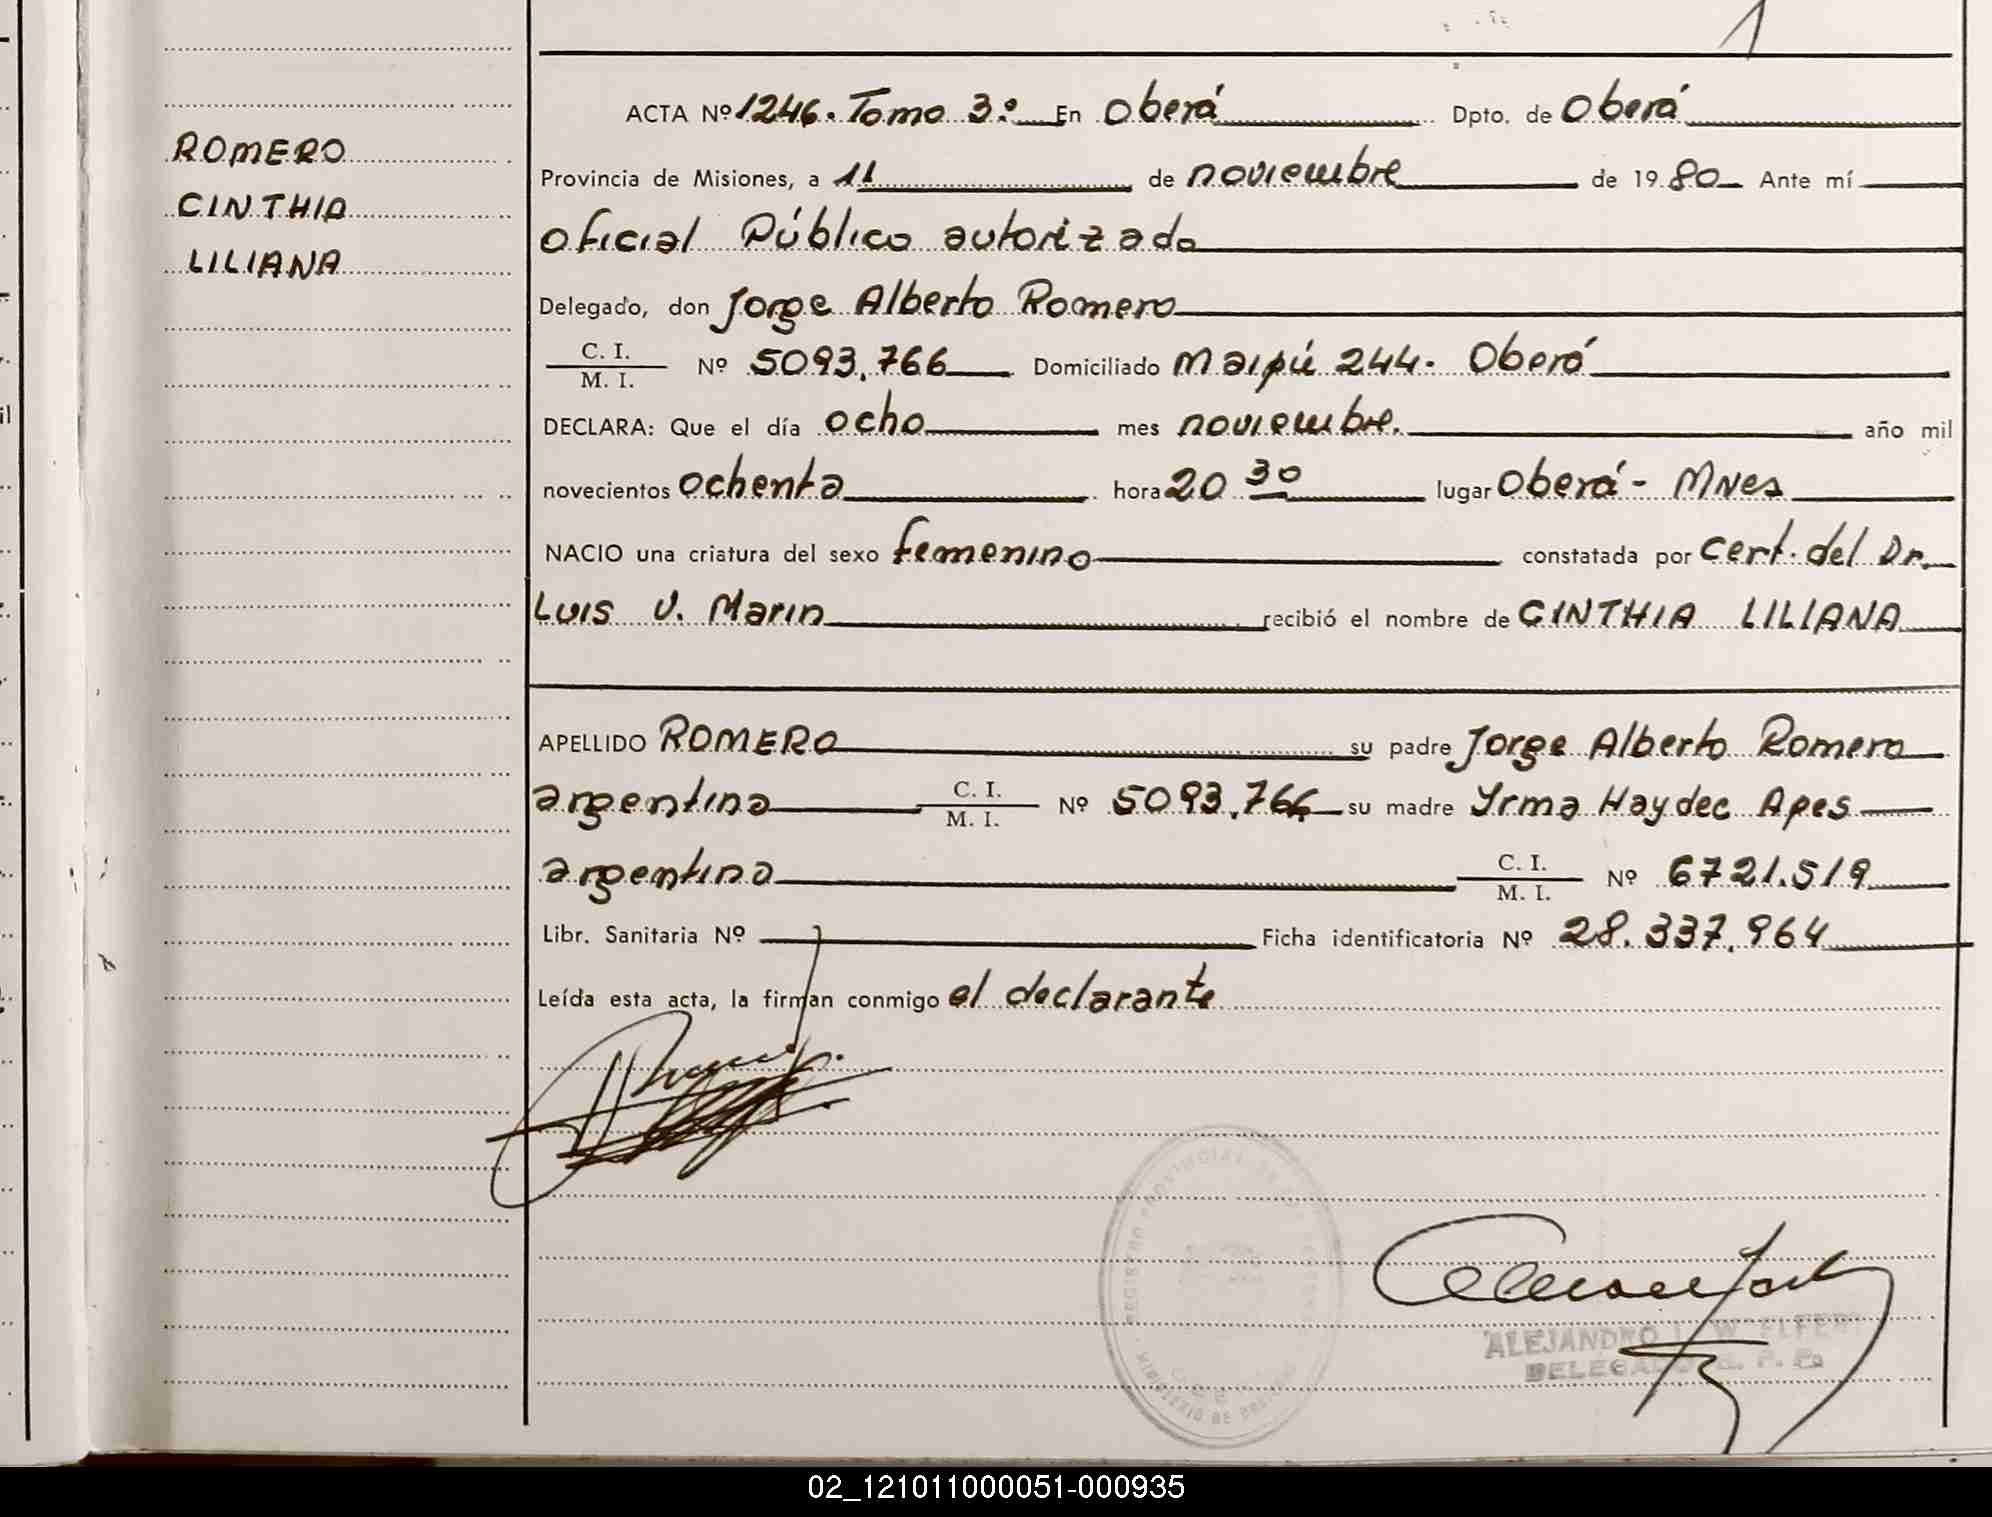 ROMERO
CINTHIA
LILIANA
ACTA Nº 1246. Tomo 3º En Oberá Dpto. de Oberá
Provincia de Misiones, a 11 de noviembre de 1980 Ante mí
oficial Público autorizado
Delegado, don Jorge Alberto Romero
C. I.
M. I. Nº 5093.766 Domiciliado Maipú 244. Oberá
DECLARA: Que el día ocho mes noviembre. año mil
novecientos ochenta hora 20 30 lugar Oberá - Mnes
NACIO una criatura del sexo femenino constatada por Cert. del Dr.
Luis V. Marin recibió el nombre de CINTHIA LILIANA
APELLIDO ROMERO su padre Jorge Alberto Romero
argentino C. I.
M. I. Nº 5093.766 su madre Yrma Haydee Apes
argentina C. I.
M. I. Nº 6721.519
Libr. Sanitaria Nº Ficha identificatoria Nº 28.337.964
Leída esta acta, la firman conmigo el declarante
ALEJANDRO
DELEGADO R. P. P.
02_121011000051-000935